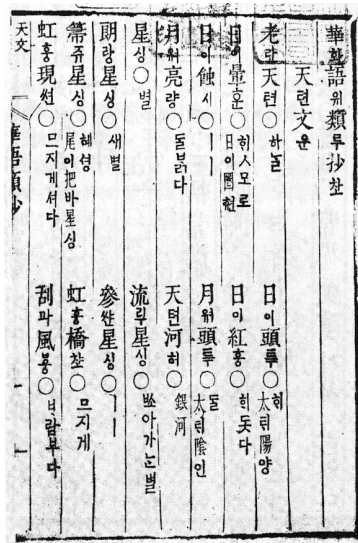 華화語위類루抄찬
天텬文운
老랖天텬○하ᄂᆞᆯ 日이頭투○ᄒᆡ 太태陽양
日이暈훈○ᄒᆡㅅ모로 日이圈 日이紅훙○ᄒᆡ돗다
日이蝕시○ㅣㅣ 月워頭투○ᄃᆞᆯ 太태陰인
月워亮량○ᄃᆞᆯᄇᆞᆰ다 天텬河허○銀河
星싱○별 流루星싱○ᄡᅩ아가ᄂᆞᆫ별
朗랑星싱○새별 參싼星싱○ㅣㅣ
箒쥬星싱○혜셩 尾이把바星싱 虹훙橋챺○므지게
虹훙現쎤○므지게셔다 刮과風봉○ᄇᆞ람부다
天文 華語類抄 一